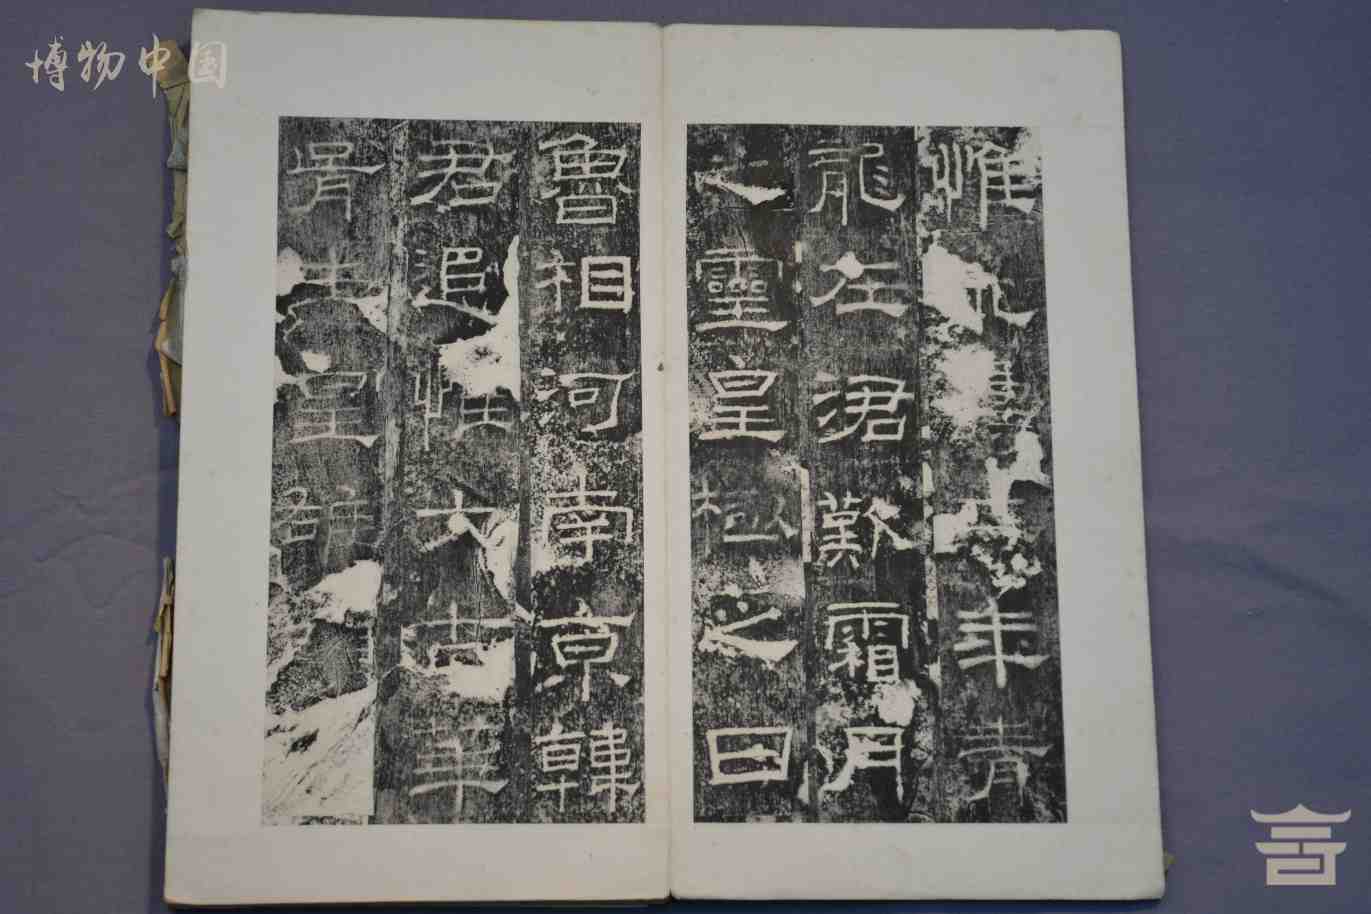 博物中国
惟永壽二年青
龍在涒歎霜月
之靈皇極之日
魯相河南京韓
君追惟太古華
胥生皇雄